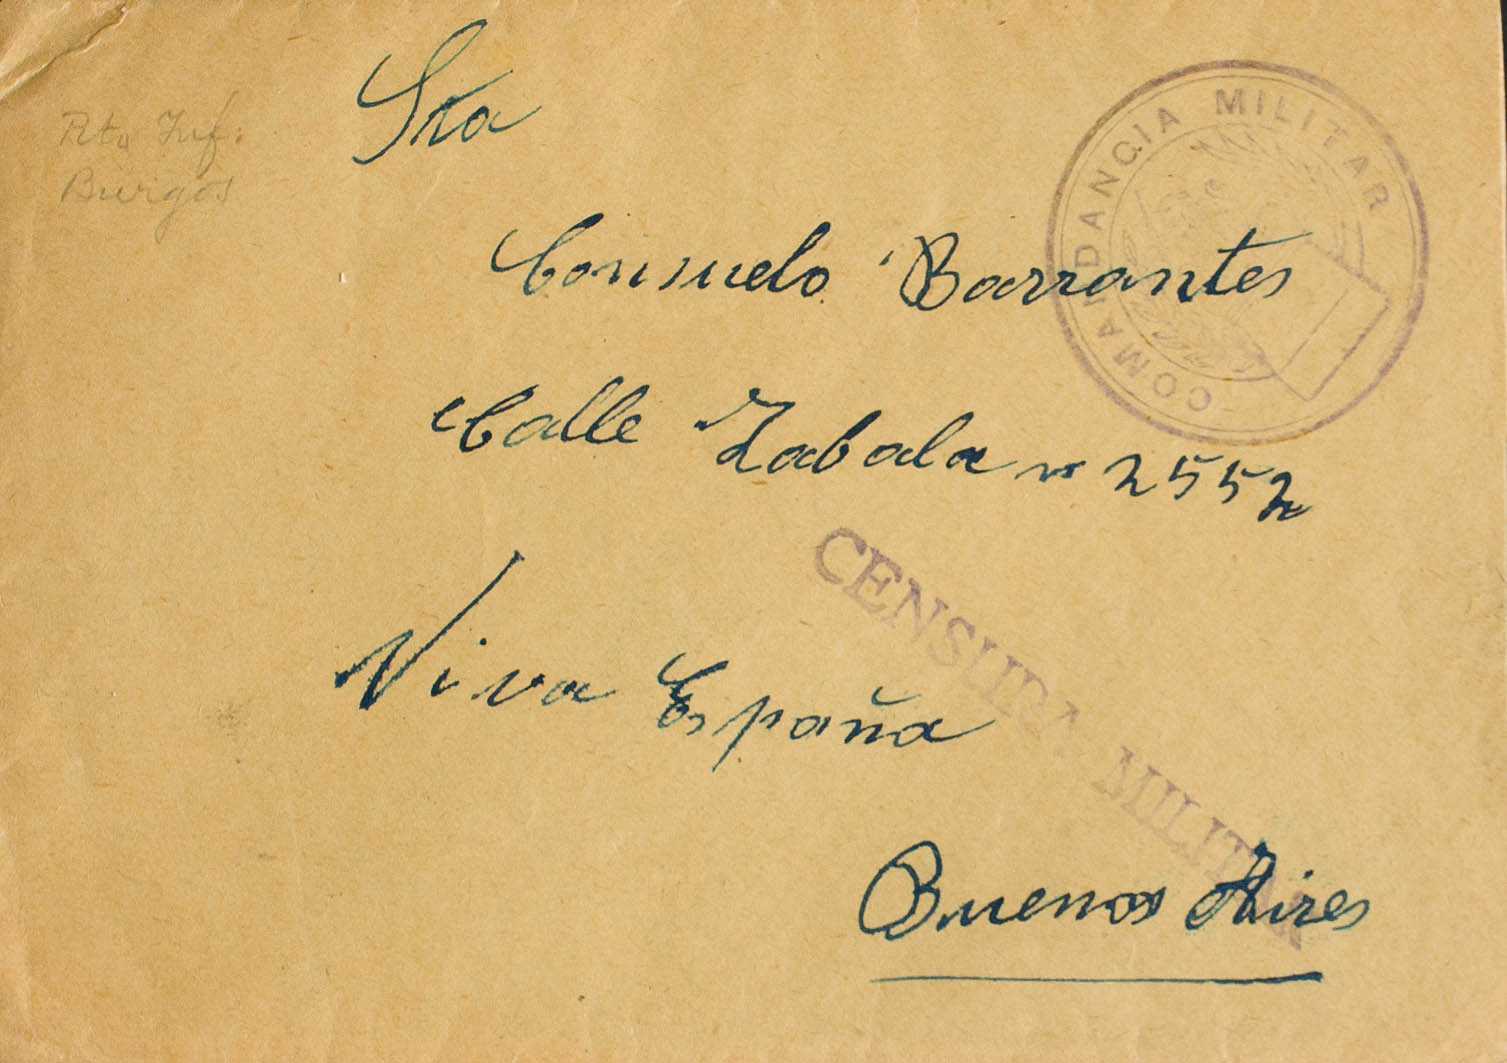 Rto Inf:
Burgos
Sta
Consuelo Barrantes
Calle Zabala nº 2552
Viva España
Buenos Aires
COMANDANCIA MILITAR
CENSURA MILITAR